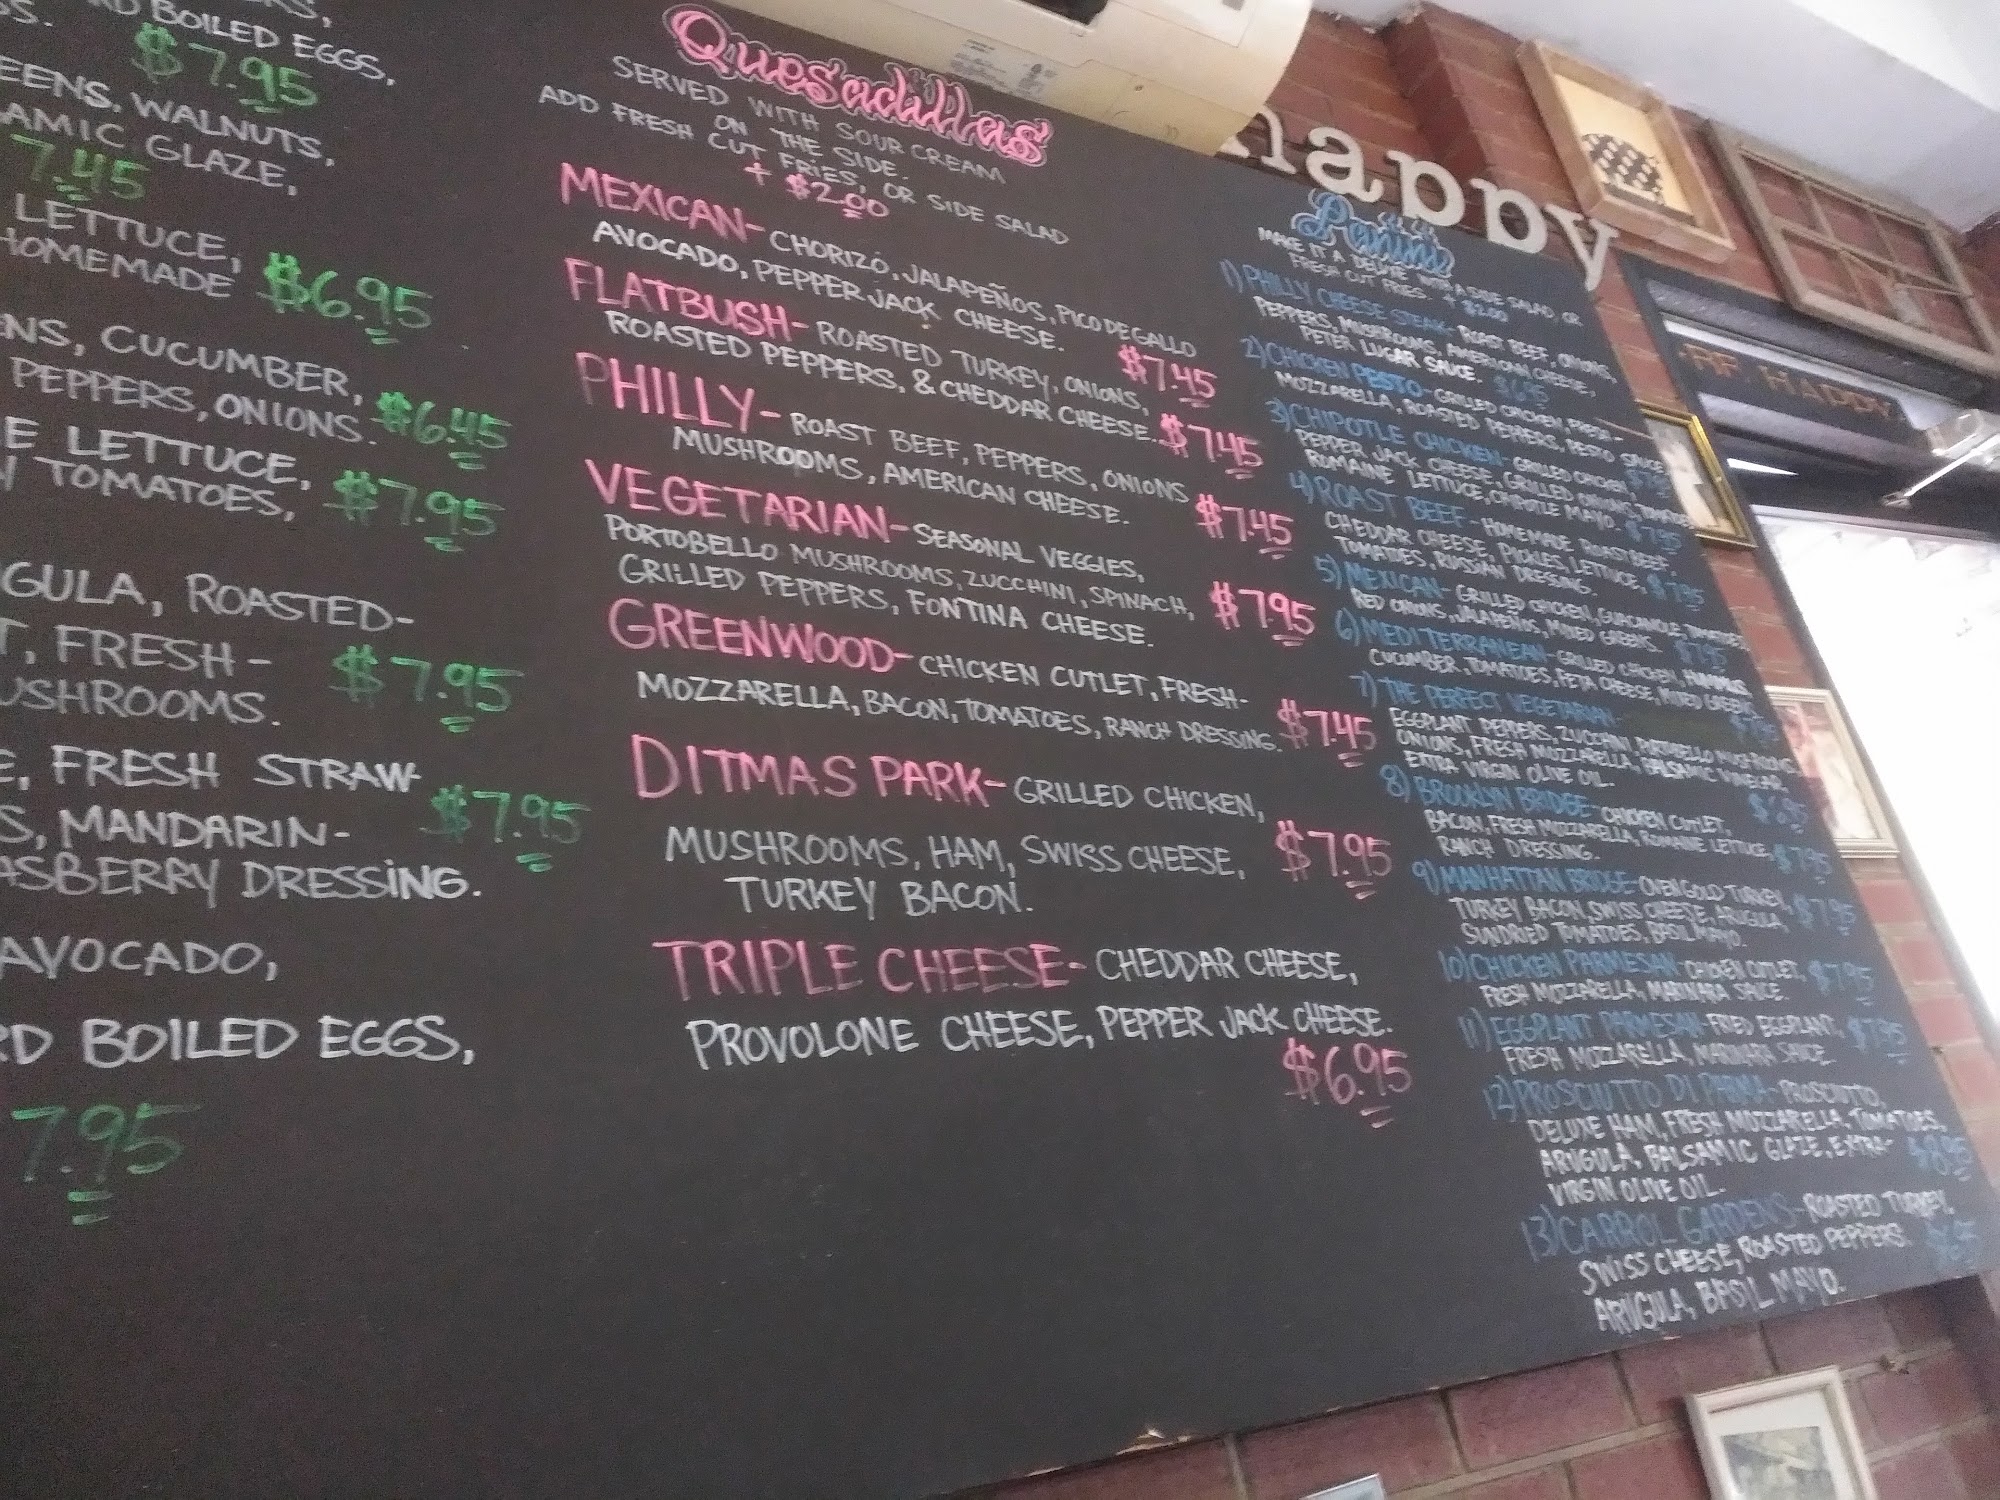 BOILED EGGS,
$7.95
WALNUTS,
GLAZE,
7.45
LETTUCE,
HOMEMADE $6.95
CUCUMBER,
PEPPERS, ONIONS. $6.45
LETTUCE,
TOMATOES, $7.95
ROASTED-
FRESH- $7.95
FRESH STRAW-
MANDARIN- $7.95
DRESSING.
AVOCADO,
BOILED EGGS,
7.95
Quesadillas
SERVED WITH SOUR CREAM
ON THE SIDE.
ADD FRESH CUT FRIES, OR SIDE SALAD
+ $2.00
MEXICAN- CHORIZO, JALAPEÑOS, PICO DE GALLO
AVOCADO, PEPPER JACK CHEESE. $7.45
FLATBUSH- ROASTED TURKEY, ONIONS,
ROASTED PEPPERS, & CHEDDAR CHEESE. $7.45
PHILLY- ROAST BEEF, PEPPERS, ONIONS
MUSHROOMS, AMERICAN CHEESE. $7.45
VEGETARIAN- SEASONAL VEGGIES,
PORTOBELLO MUSHROOMS, ZUCCHINI, SPINACH,
GRILLED PEPPERS, FONTINA CHEESE. $7.95
GREENWOOD- CHICKEN CUTLET, FRESH-
MOZZARELLA, BACON, TOMATOES, RANCH DRESSING. $7.45
DITMAS PARK- GRILLED CHICKEN,
MUSHROOMS, HAM, SWISS CHEESE, $7.95
TURKEY BACON.
TRIPLE CHEESE- CHEDDAR CHEESE,
PROVOLONE CHEESE, PEPPER JACK CHEESE.
$6.95
happy
Panini
MAKE IT A DELUXE WITH A SIDE SALAD, OR
FRESH CUT FRIES. + $2.00
1) PHILLY CHEESE STEAK- ROAST BEEF, ONIONS,
PEPPERS, MUSHROOMS, AMERICAN CHEESE,
PETER LUGAR SAUCE. $6.95
2) CHICKEN PESTO- GRILLED CHICKEN, FRESH-
MOZZARELLA, ROASTED PEPPERS, PESTO SAUCE
3) CHIPOTLE CHICKEN- GRILLED CHICKEN,
PEPPER JACK CHEESE, GRILLED ONIONS, TOMATOES
ROMAINE LETTUCE, CHIPOTLE MAYO. $7.95
4) ROAST BEEF- HOMEMADE ROAST BEEF
CHEDDAR CHEESE, PICKLES, LETTUCE,
TOMATOES, RUSSIAN DRESSING. $7.95
5) MEXICAN- GRILLED CHICKEN, GUACAMOLE, TOMATOES
RED ONIONS, JALAPEÑOS, MIXED GREENS. $7.95
6) MEDITERRANEAN- GRILLED CHICKEN, HUMMUS,
CUCUMBER, TOMATOES, FETA CHEESE, MIXED GREENS
7) THE PERFECT VEGETARIAN-
EGGPLANT PEPPERS, ZUCCHINI, PORTABELLO MUSHROOMS
ONIONS, FRESH MOZZARELLA, BALSAMIC VINEGAR,
EXTRA VIRGIN OLIVE OIL. $6.95
8) BROOKLYN BRIDGE- CHICKEN CUTLET,
BACON, FRESH MOZZARELLA, ROMAINE LETTUCE,
RANCH DRESSING. $7.95
9) MANHATTAN BRIDGE- OVENGOLD TURKEY,
TURKEY BACON, SWISS CHEESE, ARUGULA, $7.95
SUNDRIED TOMATOES, BASIL MAYO.
10) CHICKEN PARMESAN- CHICKEN CUTLET, $7.95
FRESH MOZZARELLA, MARINARA SAUCE.
11) EGGPLANT PARMESAN- FRIED EGGPLANT, $7.95
FRESH MOZZARELLA, MARINARA SAUCE.
12) PROSCIUTTO DI PARMA- PROSCIUTTO,
DELUXE HAM, FRESH MOZZARELLA, TOMATOES,
ARUGULA, BALSAMIC GLAZE, EXTRA- $8.95
VIRGIN OLIVE OIL.
13) CARROL GARDENS- ROASTED TURKEY,
SWISS CHEESE, ROASTED PEPPERS. $6.95
ARUGULA, BASIL MAYO.
HAPPY